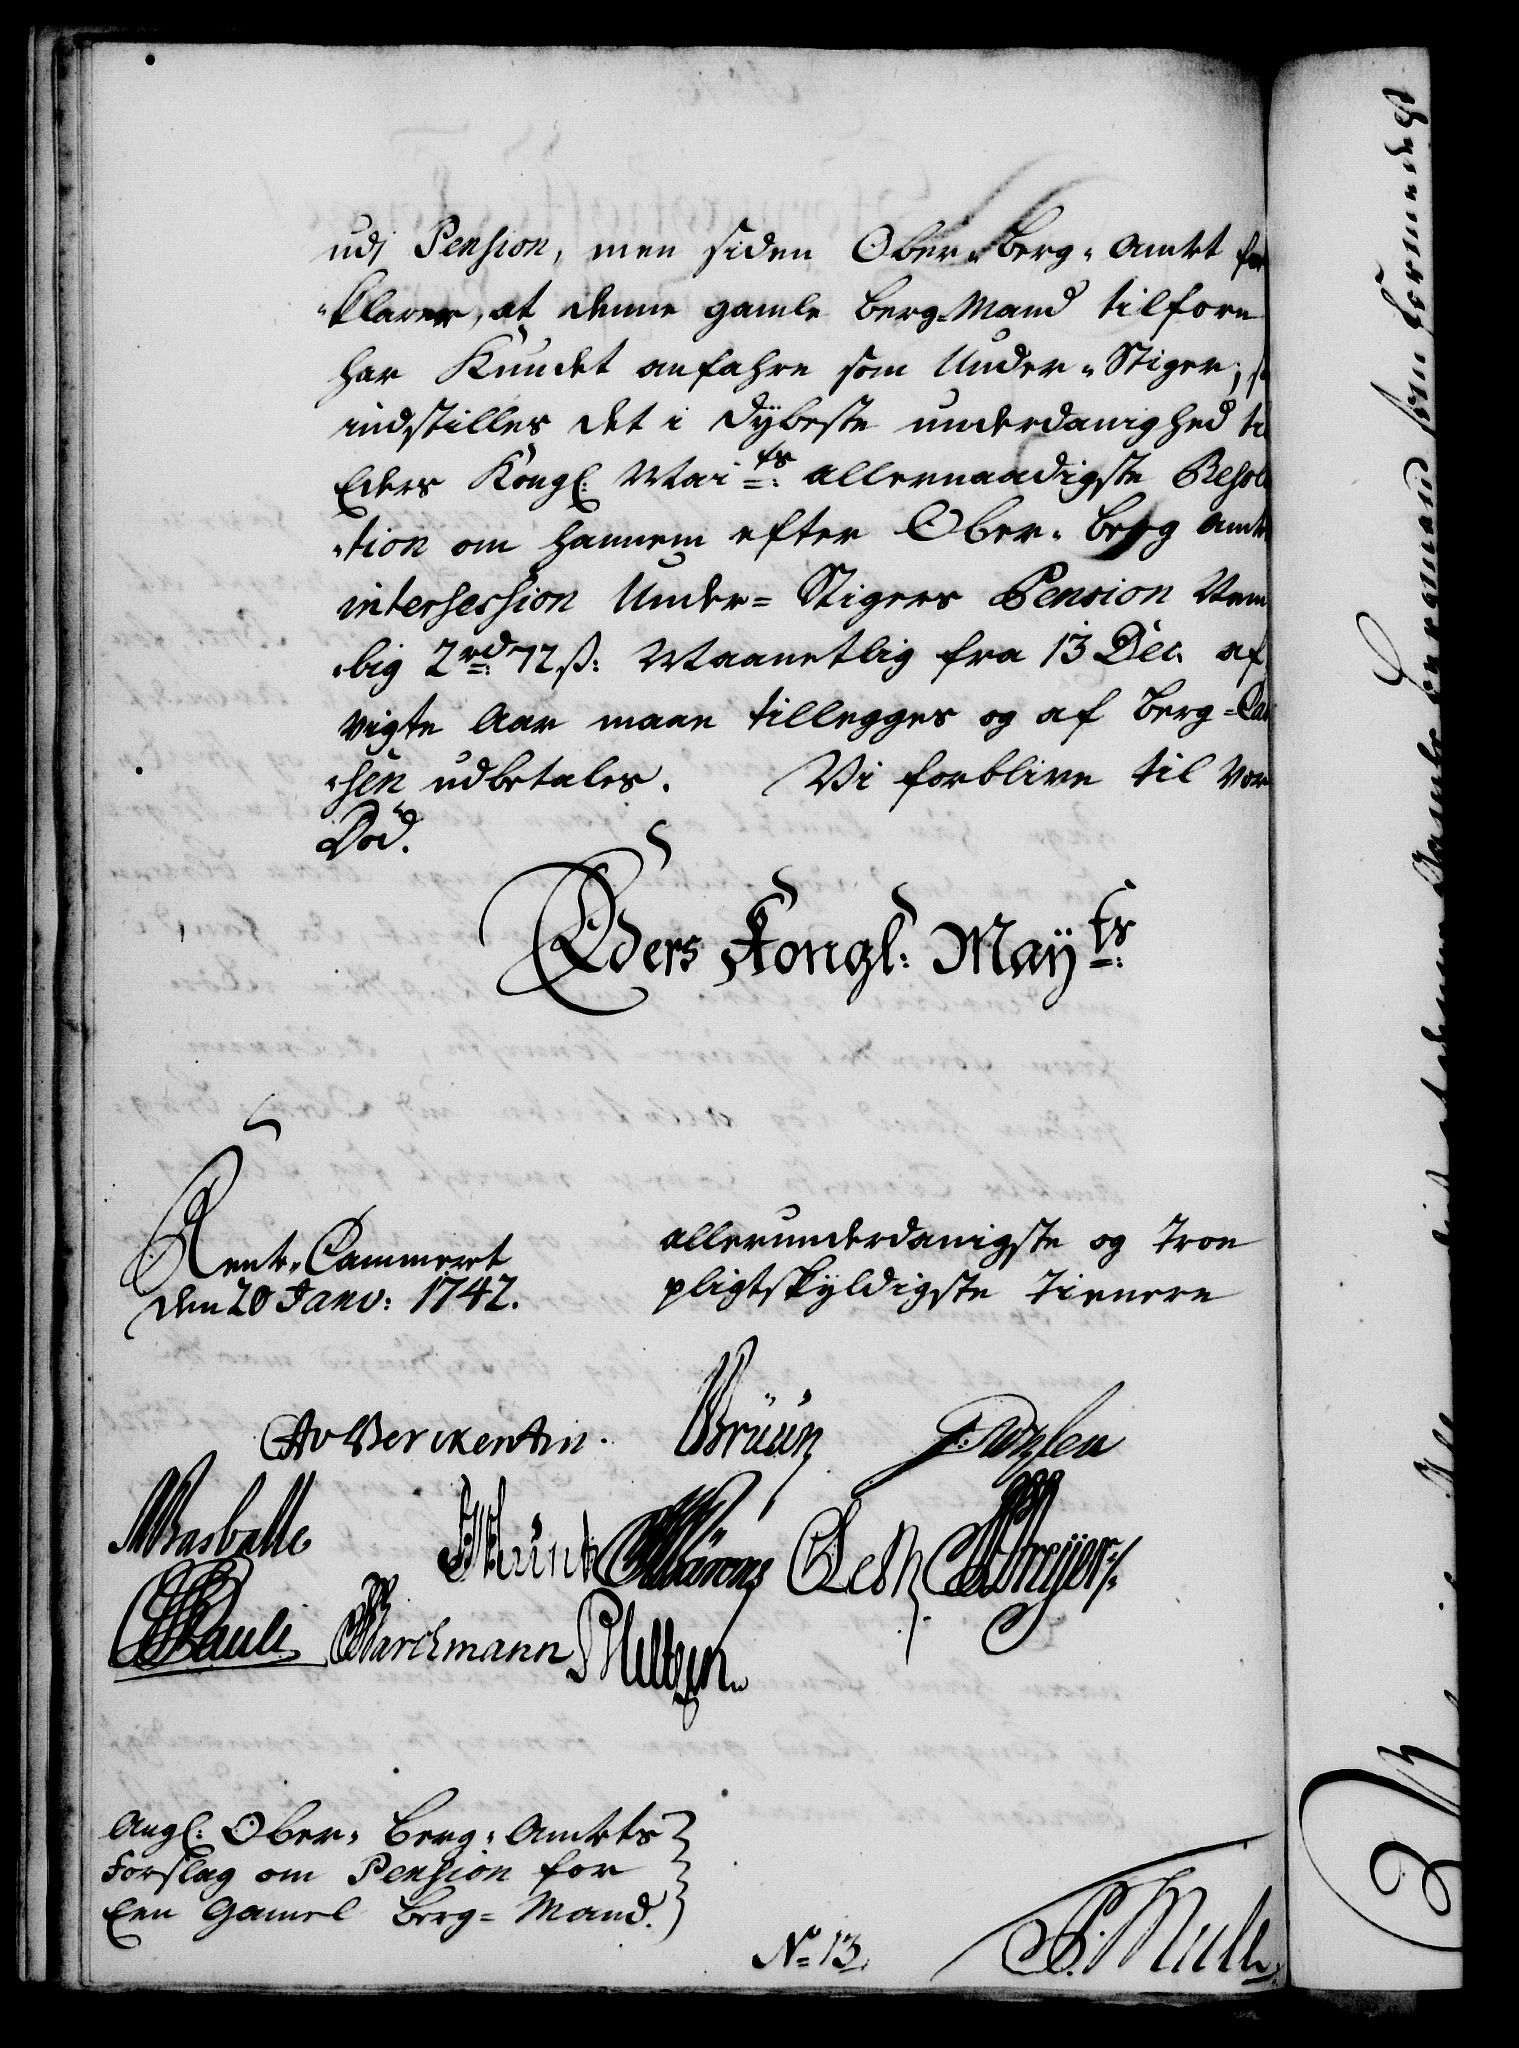 udj Pension, men siden Ober-Berg-Amtet for
-klarer, at denne gamle Berg-Mand tilforn
har Kundet anfahre som Under-Stiger; saa
indstilles det i dÿbeste underdanighed til
Eders Kongl: Mai=ts: allernaadigste Resolu
-tion om hannem efter Ober-Berg Amtets
intersession Under=Stigers Pension Nem
-lig 2 rd: 72 ß: Maanetlig fra 13 Dec. af
vigte Aar maae tillegges og af Berg=Cas
-sen udbetales. Vi forblive til vor
Död.
Eders Kongl: Maÿts:
Rente-Cammeret
den 20 Janv: 1742.
allerunderdanigste og Troe
pligtskÿldigste Tienere
AvBerckentin.
Brüün
Basballe
Pauli
Marckmann
Angl: Ober-Berg-Amtets
Forslag om Pension for
Een Gamel Berg=Mand.
No 13.
P: Mule